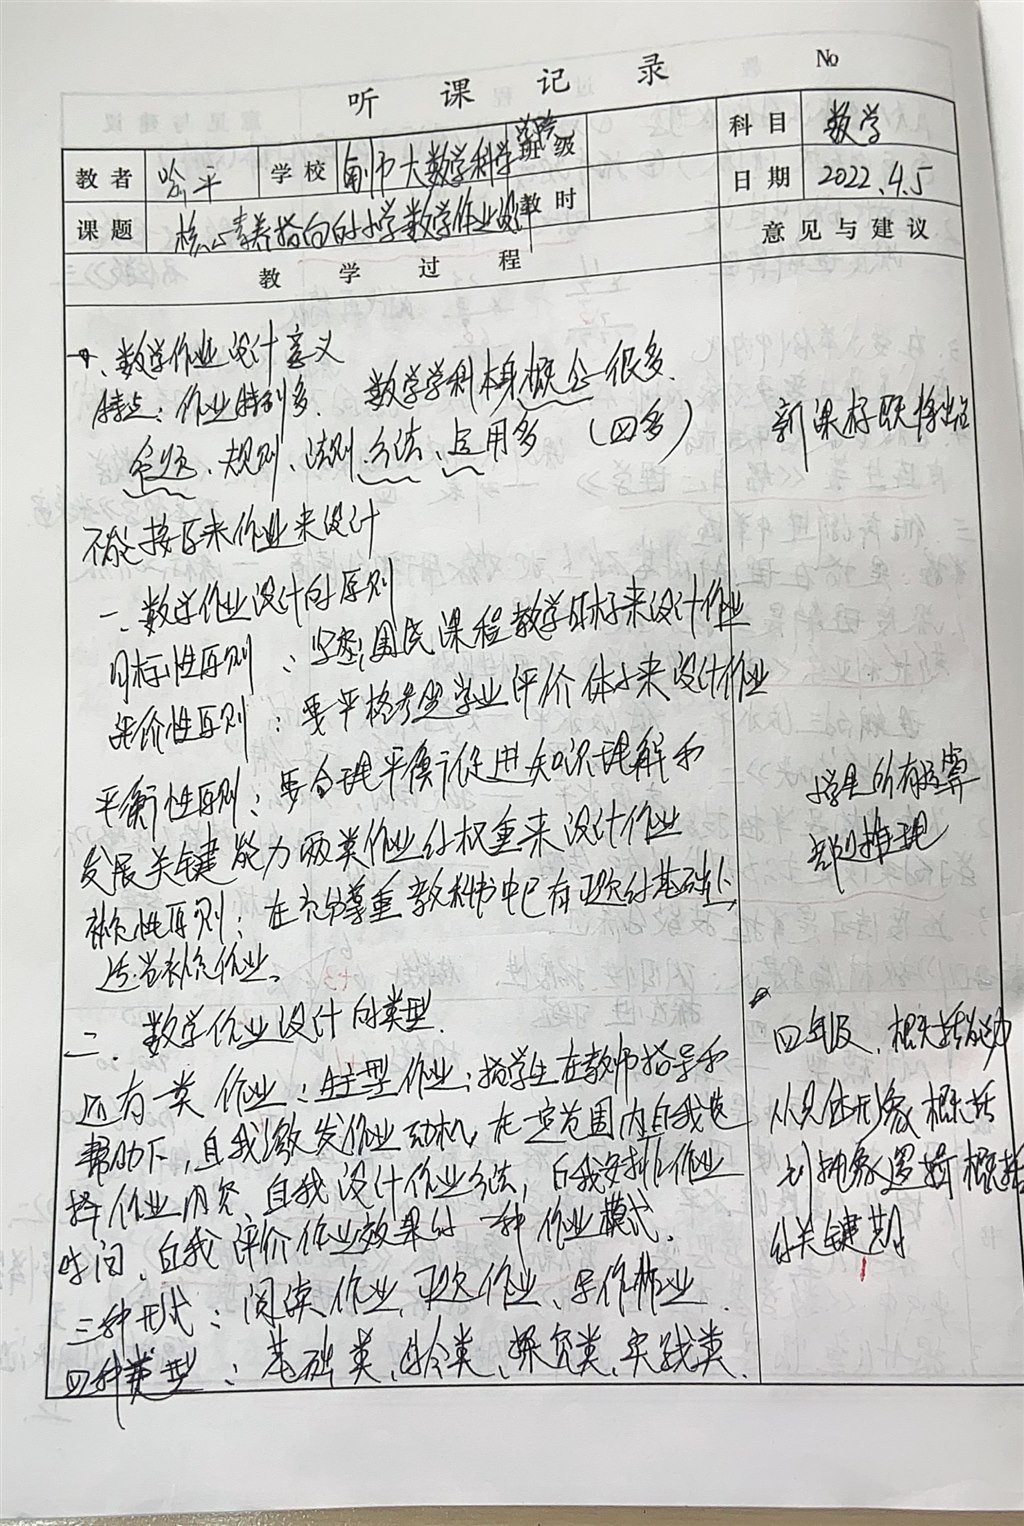 听课记录 No
教者 喻平 学校 南师大数学科学学院 班级 科目 数学
课题 核心素养指向的小学数学作业设计 教时 日期 2022.4.5
教学过程 意见与建议
一、数学作业设计意义
特点:作业特别多. 数学学科本身概念很多.
命题、规则、法则、方法、应用多 (四多)
新课标
不能按原来作业来设计
一、数学作业设计的原则
目标性原则: 国民课程教学目标来设计作业
评价性原则:要严格 学业评价体 来设计作业
平衡性原则:要合理平衡促进知识理解和
发展关键能力两类作业的权重来设计作业
小学里所有运算
都是推理
补充性原则:在充分尊重教科书中已有习题的基础上,
适当补充作业。
二. 数学作业设计的类型.
还有一类作业:自主型作业:指学生在教师指导和
帮助下,自我激发作业动机,在一定范围内自我选
择作业内容、自我设计作业方法,自我安排作业
时间、自我评价作业效果的一种作业模式.
四年级、概括能力
从具体形象概括
到抽象逻辑概括
的关键期
三种形式:阅读作业、习题作业、写作作业.
四种类型:基础类、综合类、探究类、实践类.